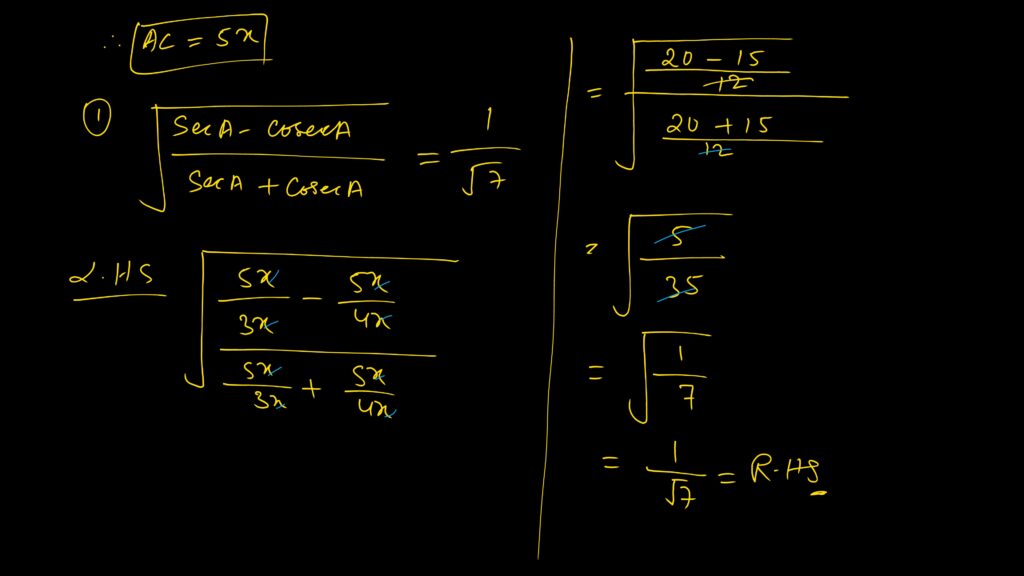 ∴ AC = 5x
① √((SecA - CosecA)/(SecA + CosecA)) = 1/√7
L.HS √((5x/3x - 5x/4x)/(5x/3x + 5x/4x))
= √(((20 - 15)/12)/((20 + 15)/12))
= √(5/35)
= √(1/7)
= 1/√7 = R.HS